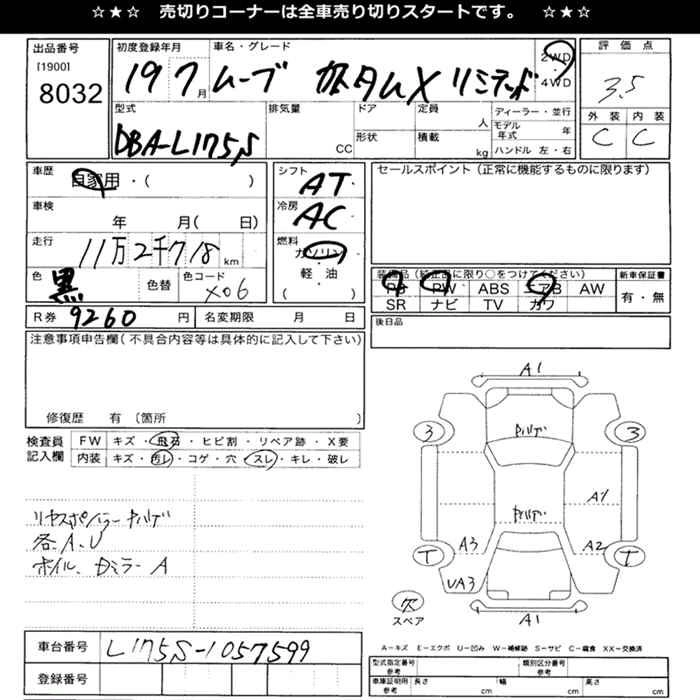 ☆★☆ 売切りコーナーは全車売り切りスタートです。 ☆★☆
出品番号
[1900]
8032
初度登録年月
19 7月
車名・グレード
ムーブ カスタムX リミテッド
2WD
・
4WD
評価点
3.5
外装 内装
C C
型式
DBA-L175S
排気量
CC
ドア
形状
定員
人
積載
kg
ディーラー・並行
モデル年式 年
ハンドル 左・右
車歴
自家用・( )
車検
年 月( 日)
走行
11万2千718km
色
黒
色替
色コード
X06
シフト
AT
冷房
AC
燃料
ガソリン
・
軽油
( )
セールスポイント(正常に機能するものに限ります)
装備品(純正品に限り○をつけてください)
PS PW ABS エアB AW
SR ナビ TV カワ
新車保証書
有・無
R券 9260円
名変期限 月 日
後日品
注意事項申告欄(不具合内容等は具体的に記入して下さい)
修復歴 有(箇所 )
検査員記入欄
FW キズ・飛石・ヒビ割・リペア跡・X要
内装 キズ・汚レ・コゲ・穴・スレ・キレ・破レ
リヤスポイラー キハゲ
各A.U
ホイル、Dミラー A
A1
3 キハゲ 3
キハゲ A1
T A3 A2 T
UA3
欠
スペア
A1
A-キズ E-エクボ U-凹み W-補修跡 S-サビ C-腐食 XX-交換済
車台番号 L175S-1057599
登録番号
型式指定番号
参考
類別区分番号
参考
車庫証明用
参考
長さ cm
幅 cm
高さ cm